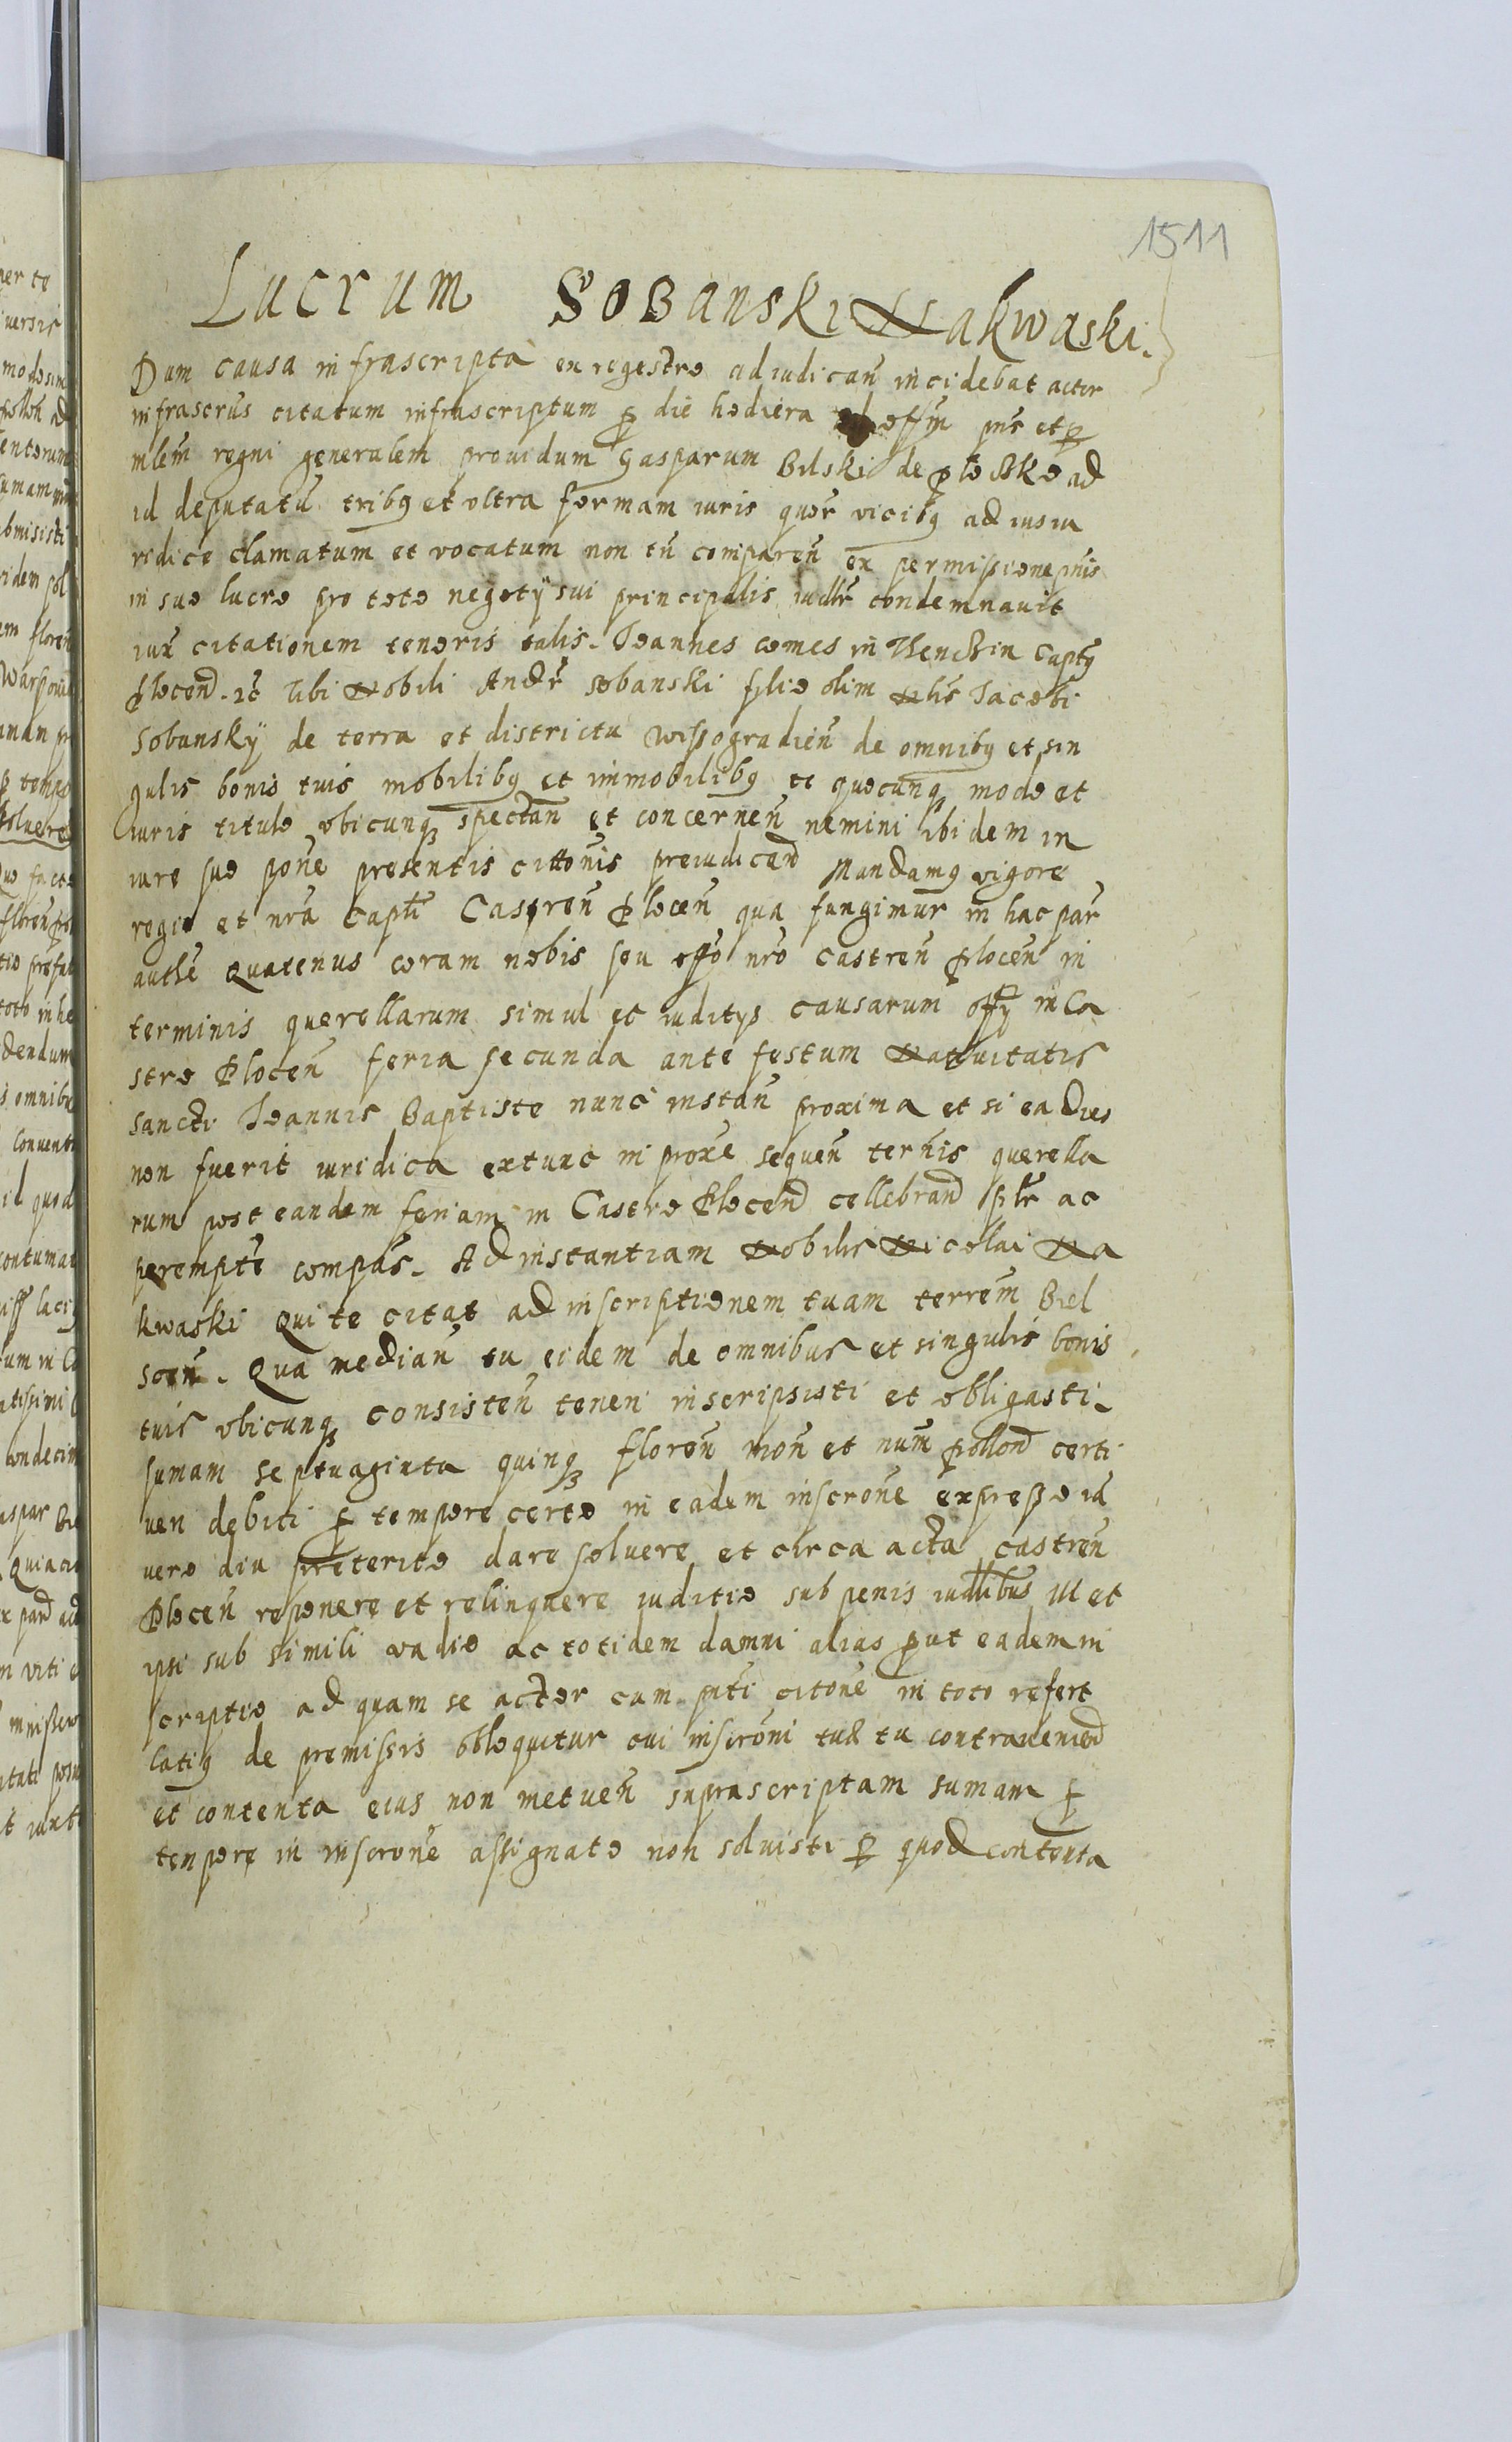 1511
Lucrum Sobanski Nakwaski.
Dum causa infrascripta ex regestro adiudican̄ incidebat actor
infrascrūs citatum infrascriptum p die hodierna ad offm pns et p
mlem̄ regni generalem prouidum Gasparum Bilski de Plo ad
id deputatū tribꝫ et vltra formam iuris quer vicibꝫ ad iusiu
ridice clamatum et vocatum non tn̄ comparen̄ ex permissione pnis
in suo lucro pro toto negotÿ sui principalis iudlr condemnauit
iux̄ citationem tenoris talis. Ioannes comes in Thenczin Captꝫ
Plocen̄. ꝛc̄ Tibi Nobili Andr̄ Sobanski filio olim Nlis̄ Iacobi
Sobanskÿ de terra et districtu Wissogradien̄ de omnibꝫ et sin
gulis bonis tuis mobilibꝫ et immobilibꝫ te quocunqꝫ modo et
iuris titulo vbicunqꝫ spectan̄ et concernen̄ nemini ibidem in
iure suo pone presentis cittonis preiudicand Mandamꝫ vigore
regia et nrā Capti Castren̄ Plocen̄ qua fungimur in hac par̄
authē Quatenus coram nobis seu offo nrō castren̄ Plocen̄ in
terminis querellarum simul et iuditÿs causarum offÿ in Ca
stro Plocen̄ feria secunda ante festum Natiuitatis
sancti Ioannis Baptiste nunc instan̄ proxima et si ea dies
non fuerit iuridica extunc in proxe sequen̄ ternis querella
rum post eandem feriam in Castro Plocen̄ cellebrand plr̄ ac
perempte compās. Ad instantiam Nobilis Nicolai Na
kwaski Qui te citat ad inscriptionem tuam terrem Biel
scen̄. Qua median̄ tu eidem de omnibus et singulis bonis
tuis vbicunqꝫ consisten̄ teneri inscripsisti et obligasti
sumam septuaginta quinqꝫ floren̄ mon̄ et num̄ Pollon̄ certi
veri debiti p tempore certo in eadem inscrone expresso iā
vero diu preterito dare soluere et circa acta castren̄
Plocen̄ reponere et relinquere iuditio sub penis iudlibus III et
ipsi sub simili vadio ac totidem damni alias put eadem in
scriptio ad quam se actor cum pnti citone in toto refert
latiꝫ de premissis obloquitur cui inscroni tuæ tu contraueniend
et contenta eius non metuen̄ suprascriptam sumam p
tempore in inscrone assignato non soluisti P quod contenta